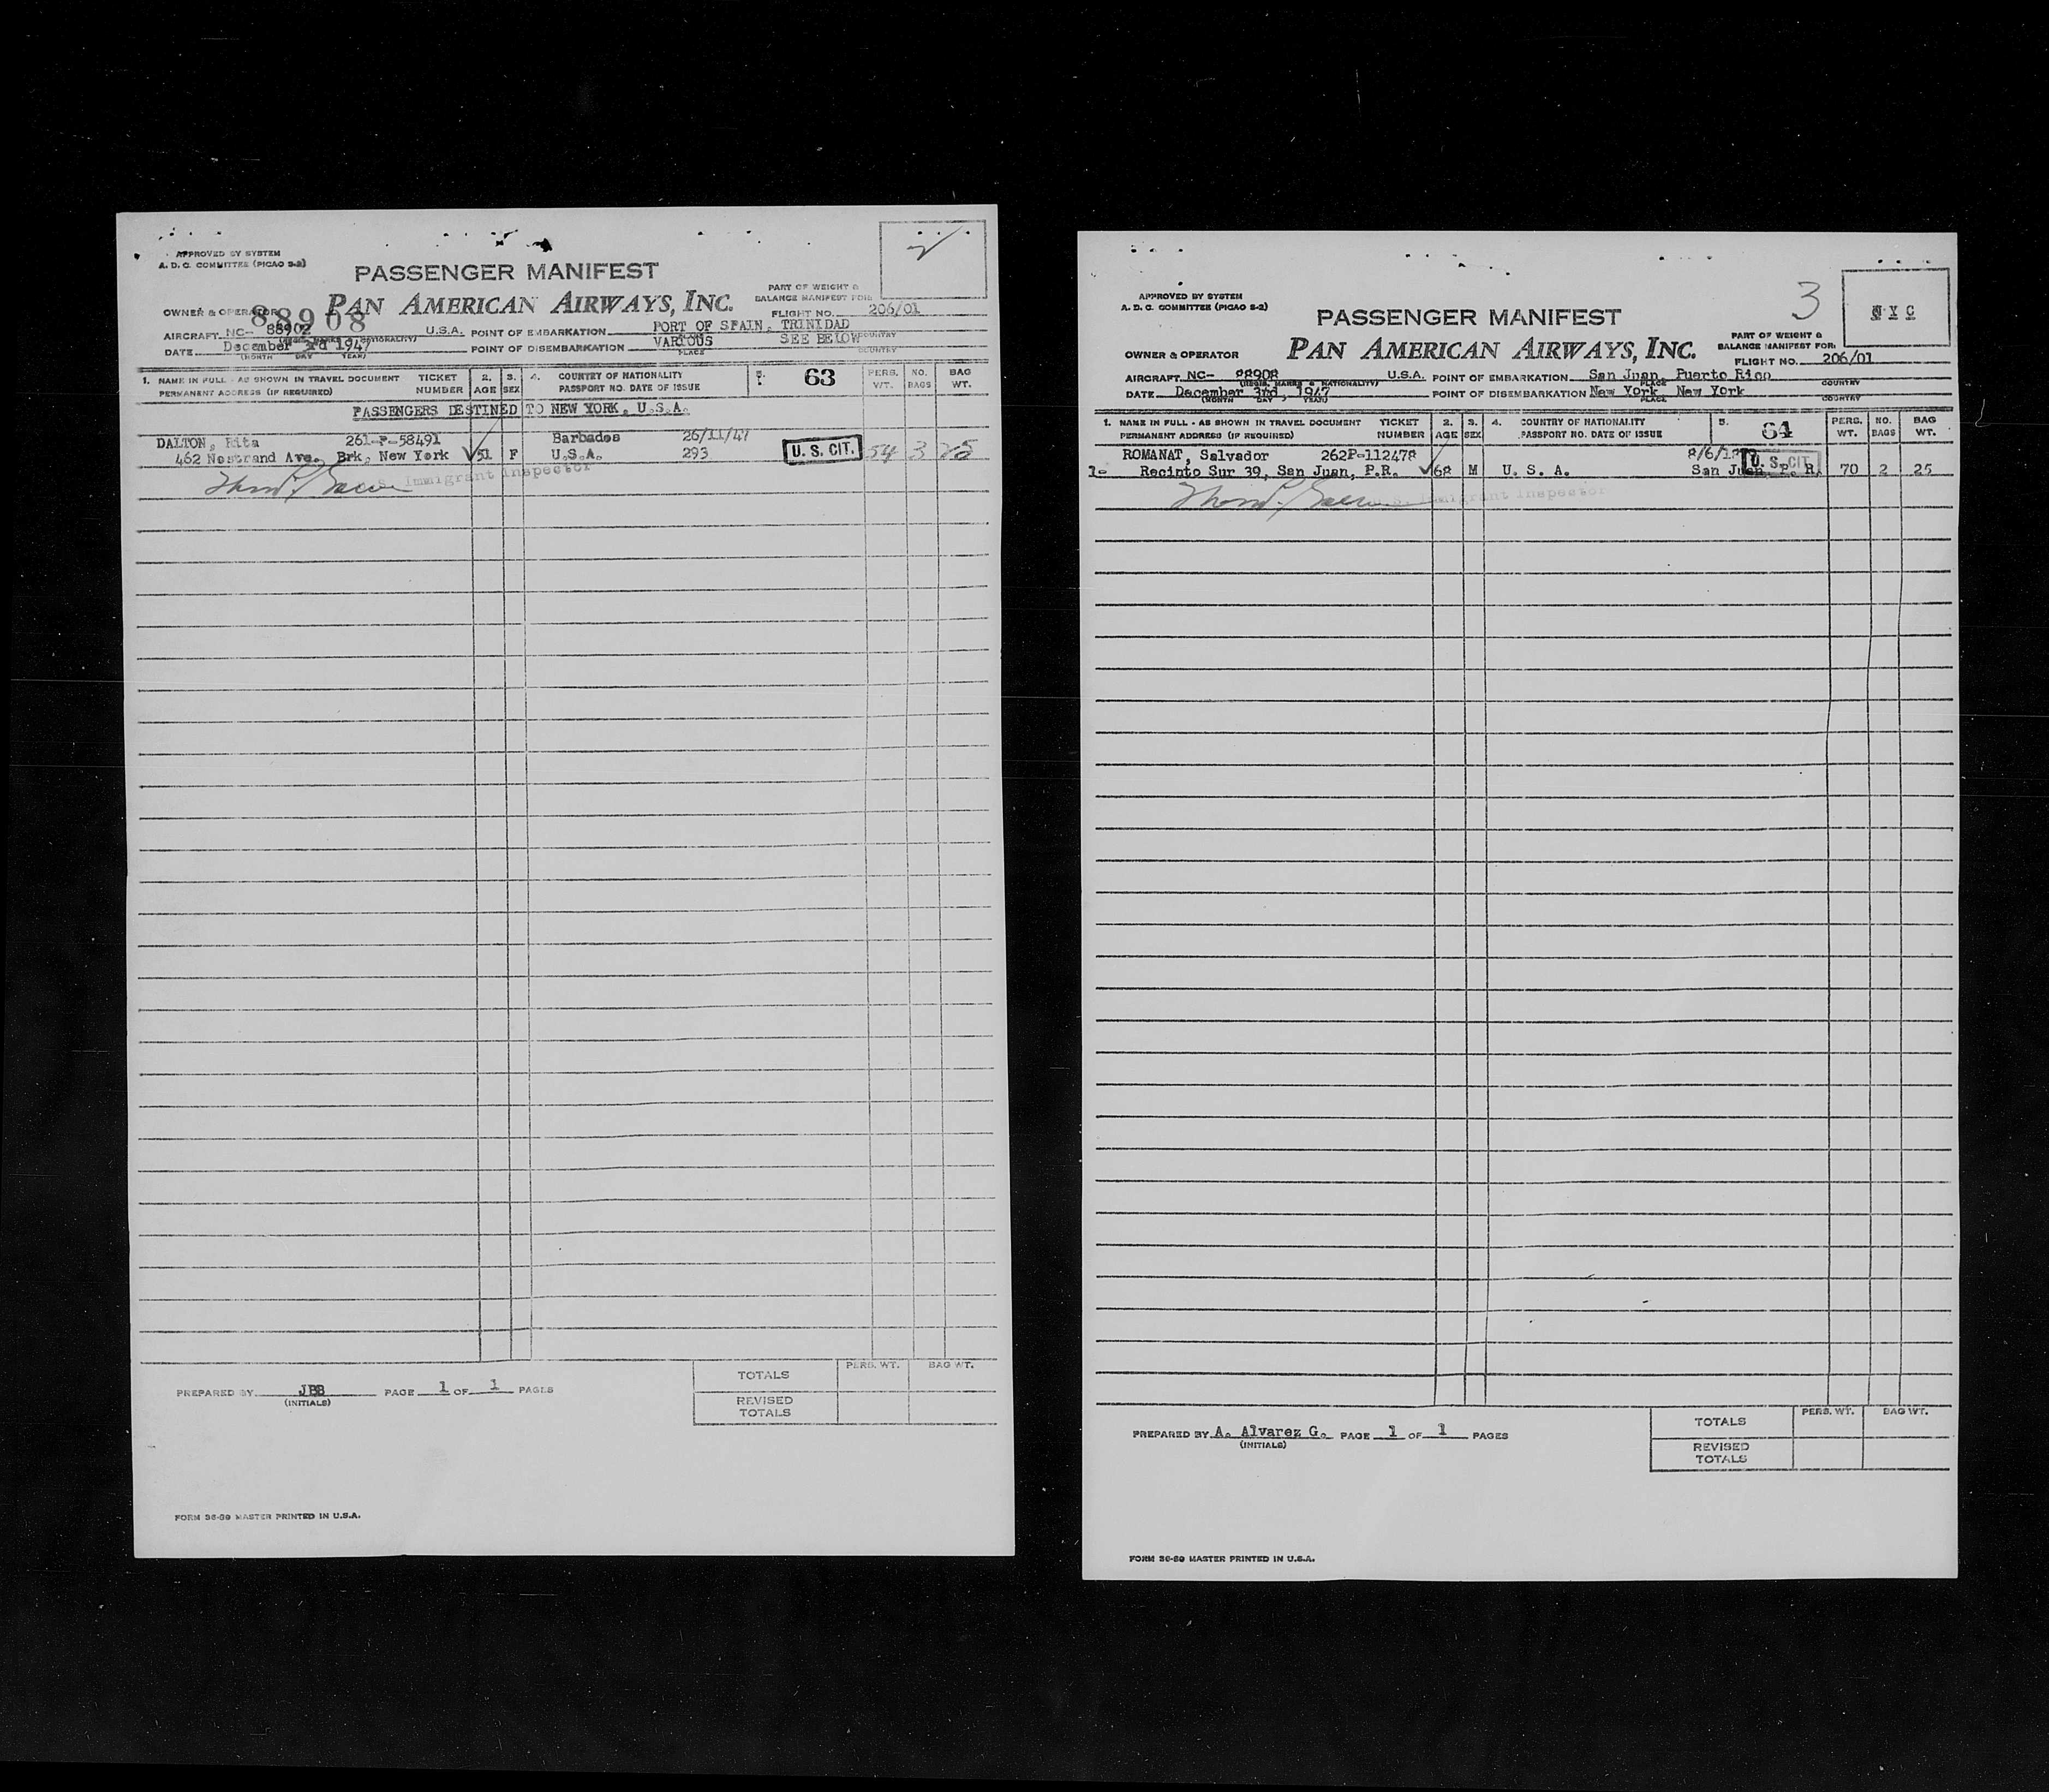 2
APPROVED BY SYSTEM
A. D. C. COMMITTEE (PICAO S-2)
PASSENGER MANIFEST
PART OF WEIGHT &
BALANCE MANIFEST FOR:
OWNER & OPERATOR PAN AMERICAN AIRWAYS, INC. FLIGHT NO. 206/01
88908
AIRCRAFT NC- 88902 U.S.A. POINT OF EMBARKATION PORT OF SPAIN, TRINIDAD
(REGIS. MARKS & NATIONALITY) COUNTRY
DATE December 3rd 1947 POINT OF DISEMBARKATION VARIOUS SEE BELOW
(MONTH DAY YEAR) PLACE COUNTRY
1. NAME IN FULL - AS SHOWN IN TRAVEL DOCUMENT TICKET 2. 3. 4. COUNTRY OF NATIONALITY 5. 63 PERS. NO. BAG
PERMANENT ADDRESS (IF REQUIRED) NUMBER AGE SEX PASSPORT NO. DATE OF ISSUE WT. BAGS WT.
PASSENGERS DESTINED TO NEW YORK, U.S.A.
DALTON, Rita 261-P-58491 Barbados 26/11/47
462 Nostrand Ave. Brk, New York 51 F U.S.A. 293 U. S. CIT. 54 3 25
Immigrant Inspector
PREPARED BY JBB PAGE 1 OF 1 PAGES
(INITIALS)
PERS. WT. BAG WT.
TOTALS
REVISED
TOTALS
FORM 36-69 MASTER PRINTED IN U.S.A.
3
NYC
APPROVED BY SYSTEM
A. D. C. COMMITTEE (PICAO S-2)
PASSENGER MANIFEST
PART OF WEIGHT &
BALANCE MANIFEST FOR:
OWNER & OPERATOR PAN AMERICAN AIRWAYS, INC. FLIGHT NO. 206/01
AIRCRAFT NC- 88908 U.S.A. POINT OF EMBARKATION San Juan, Puerto Rico
(REGIS. MARKS & NATIONALITY) PLACE COUNTRY
DATE December 3rd, 1947 POINT OF DISEMBARKATION New York, New York
(MONTH DAY YEAR) PLACE COUNTRY
1. NAME IN FULL - AS SHOWN IN TRAVEL DOCUMENT TICKET 2. 3. 4. COUNTRY OF NATIONALITY 5. 64 PERS. NO. BAG
PERMANENT ADDRESS (IF REQUIRED) NUMBER AGE SEX PASSPORT NO. DATE OF ISSUE WT. BAGS WT.
ROMANAT, Salvador 262P-112478 U. S. CIT.
1- Recinto Sur 39, San Juan, P.R. 68 M U. S. A. San Juan, P. R. 70 2 25
Immigrant Inspector
PREPARED BY A. Alvarez G. PAGE 1 OF 1 PAGES
(INITIALS)
PERS. WT. BAG WT.
TOTALS
REVISED
TOTALS
FORM 36-69 MASTER PRINTED IN U.S.A.